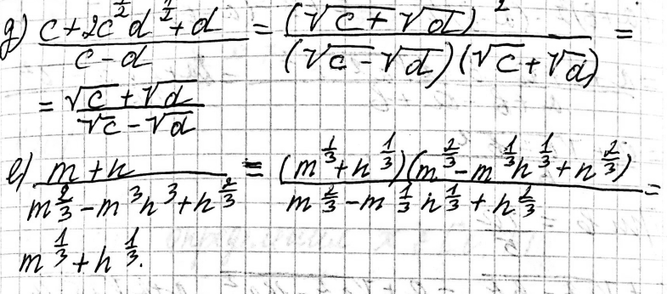 д) (c + 2c^(1/2) d^(1/2) + d) / (c - d) = (√c + √d)^2 / ((√c - √d)(√c + √d)) =
= (√c + √d) / (√c - √d)
е) (m + n) / (m^(2/3) - m^3 n^3 + n^(2/3)) = (m^(1/3) + n^(1/3))(m^(2/3) - m^(1/3) n^(1/3) + n^(2/3)) / (m^(2/3) - m^(1/3) n^(1/3) + n^(2/3)) =
m^(1/3) + n^(1/3).